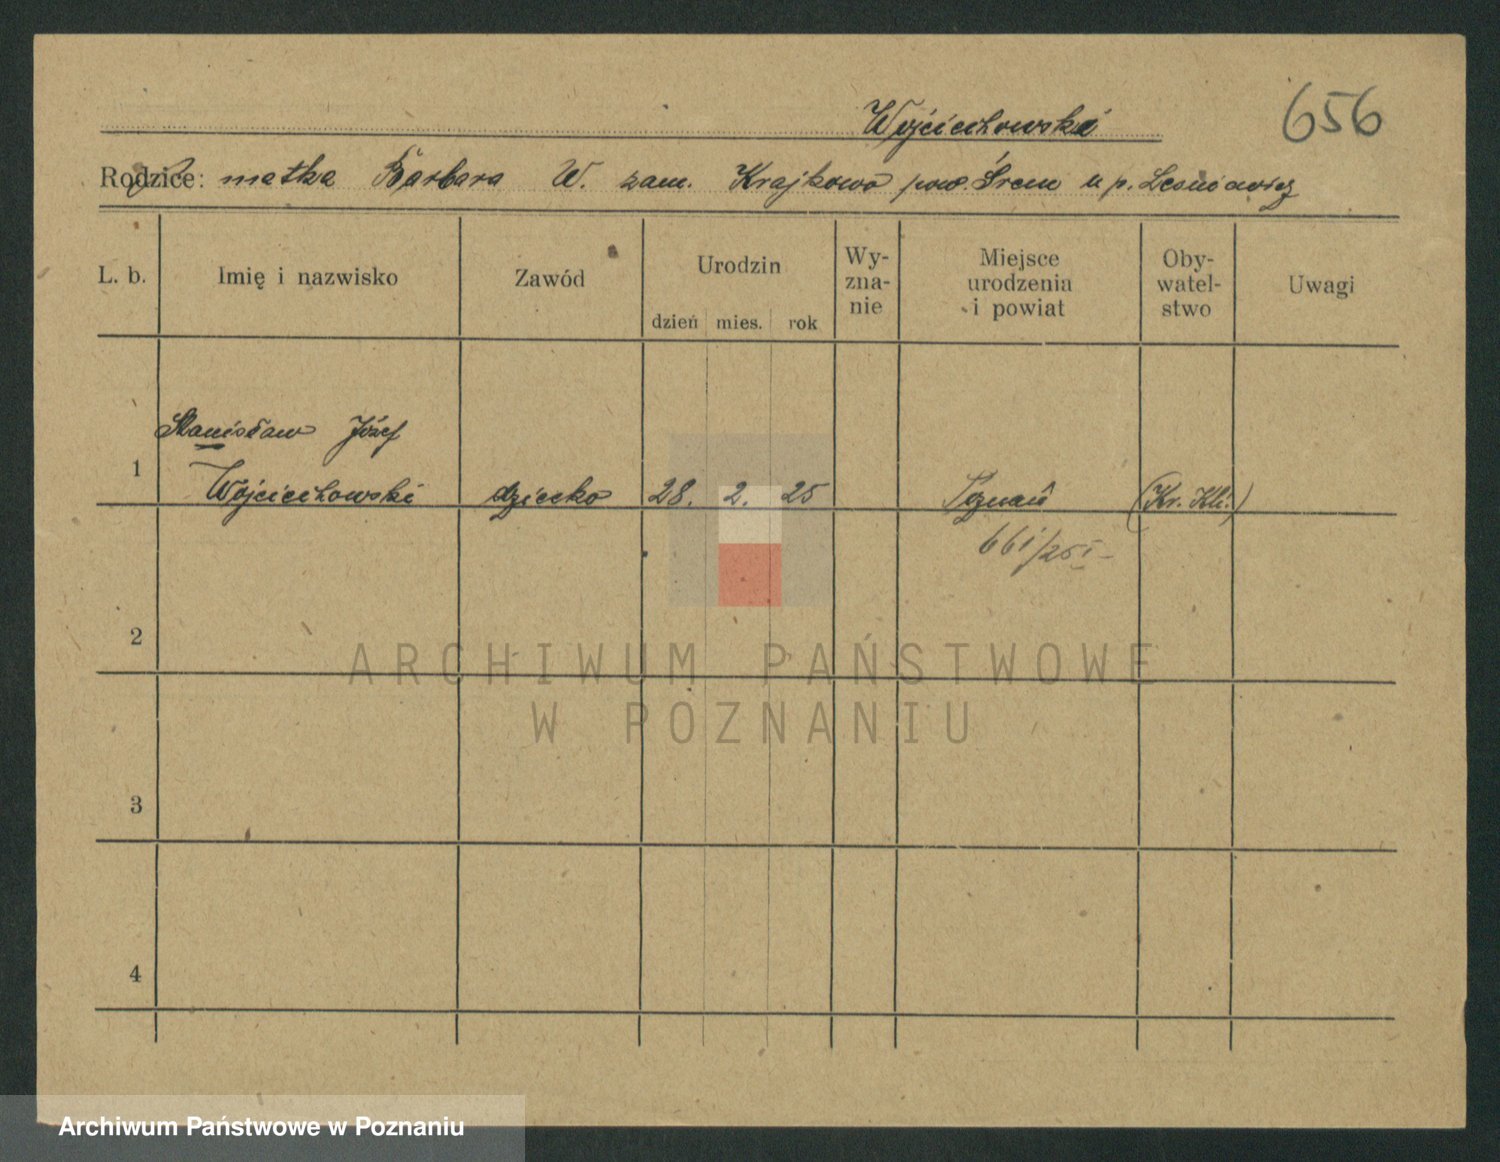 Wojciechowski
656
Rodzice: matka Barbara W. zam. Krajkowo pow. Śrem u p. Leśniewicz
L. b.
Imię i nazwisko
Zawód
Urodzin
dzień mies. rok
Wy-
zna-
nie
Miejsce
urodzenia
i powiat
Oby-
watel-
stwo
Uwagi
Stanisław Józef
1 Wojciechowski dziecko 28. 2. 25 Poznań (Kr. Kli.)
661/25 I
2
3
4
ARCHIWUM PAŃSTWOWE
W POZNANIU
Archiwum Państwowe w Poznaniu